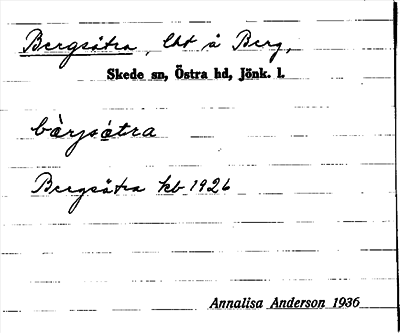 Bergsätra, lht å Berg,
Skede sn, Östra hd, Jönk. l.
bàrjsætra
Bergsätra kb 1926
Annalisa Anderson 1936